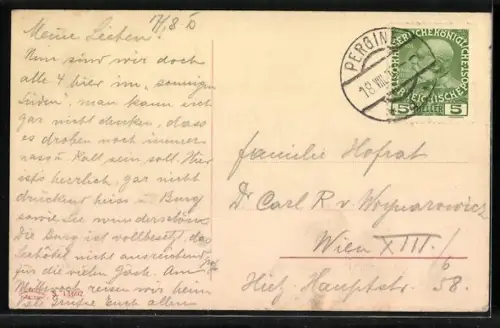 17/8
Meine Lieben!
Nun sind wir doch
alle 4 hier im „sonnigen
Süden", man kann sich
gar nicht denken, dass
es droben noch immer
so kalt sein soll. Hier
ists herrlich, gar nicht
drückend heiss – Burg
sowie See wunderschön.
Die Burg ist vollbesetzt, das
Seehotel nicht ausreichend
für die vielen Gäste. Am
Mittwoch reisen wir heim
Viele Grüsse Euch allen
13602
PERGIN
18 VIII
KAISERLICHE KÖNIGLICHE
ÖSTERREICHISCHE POST
5 HELLER 5
Familie Hofrat
Dr Carl R v. Woynarowicz
Wien XIII./6
Hietz. Hauptstr. 58.